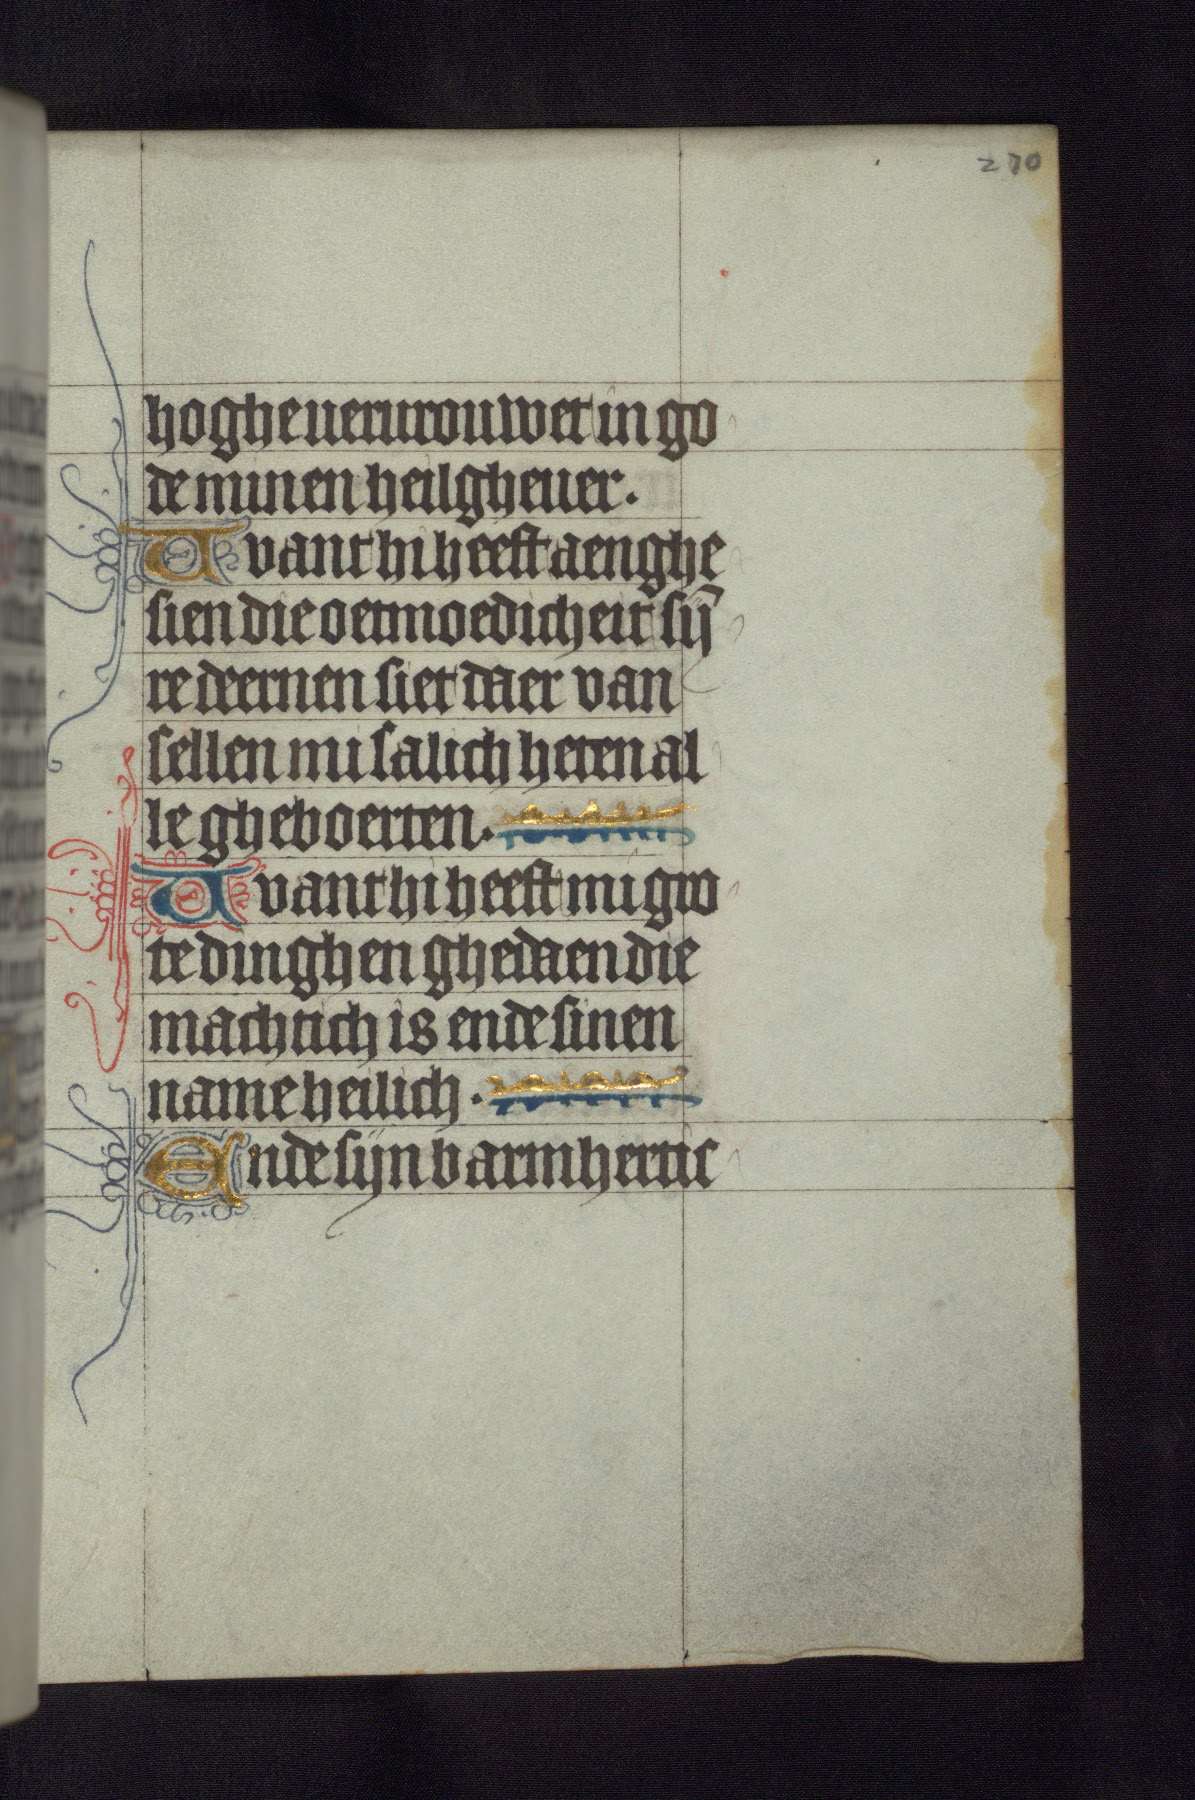 270
hogheuerurouwet in go
de minen heilgheuer.
Uvant hi heeft aenghe
sien die oetmoedicheit sij̄
re deernen siet daer van
sellen mi salich heten al
le gheboerten.
Uvant hi heeft mi gro
te dinghen ghedaen die
machtich is ende sinen
name heilich.
Ende sijn barmhertic